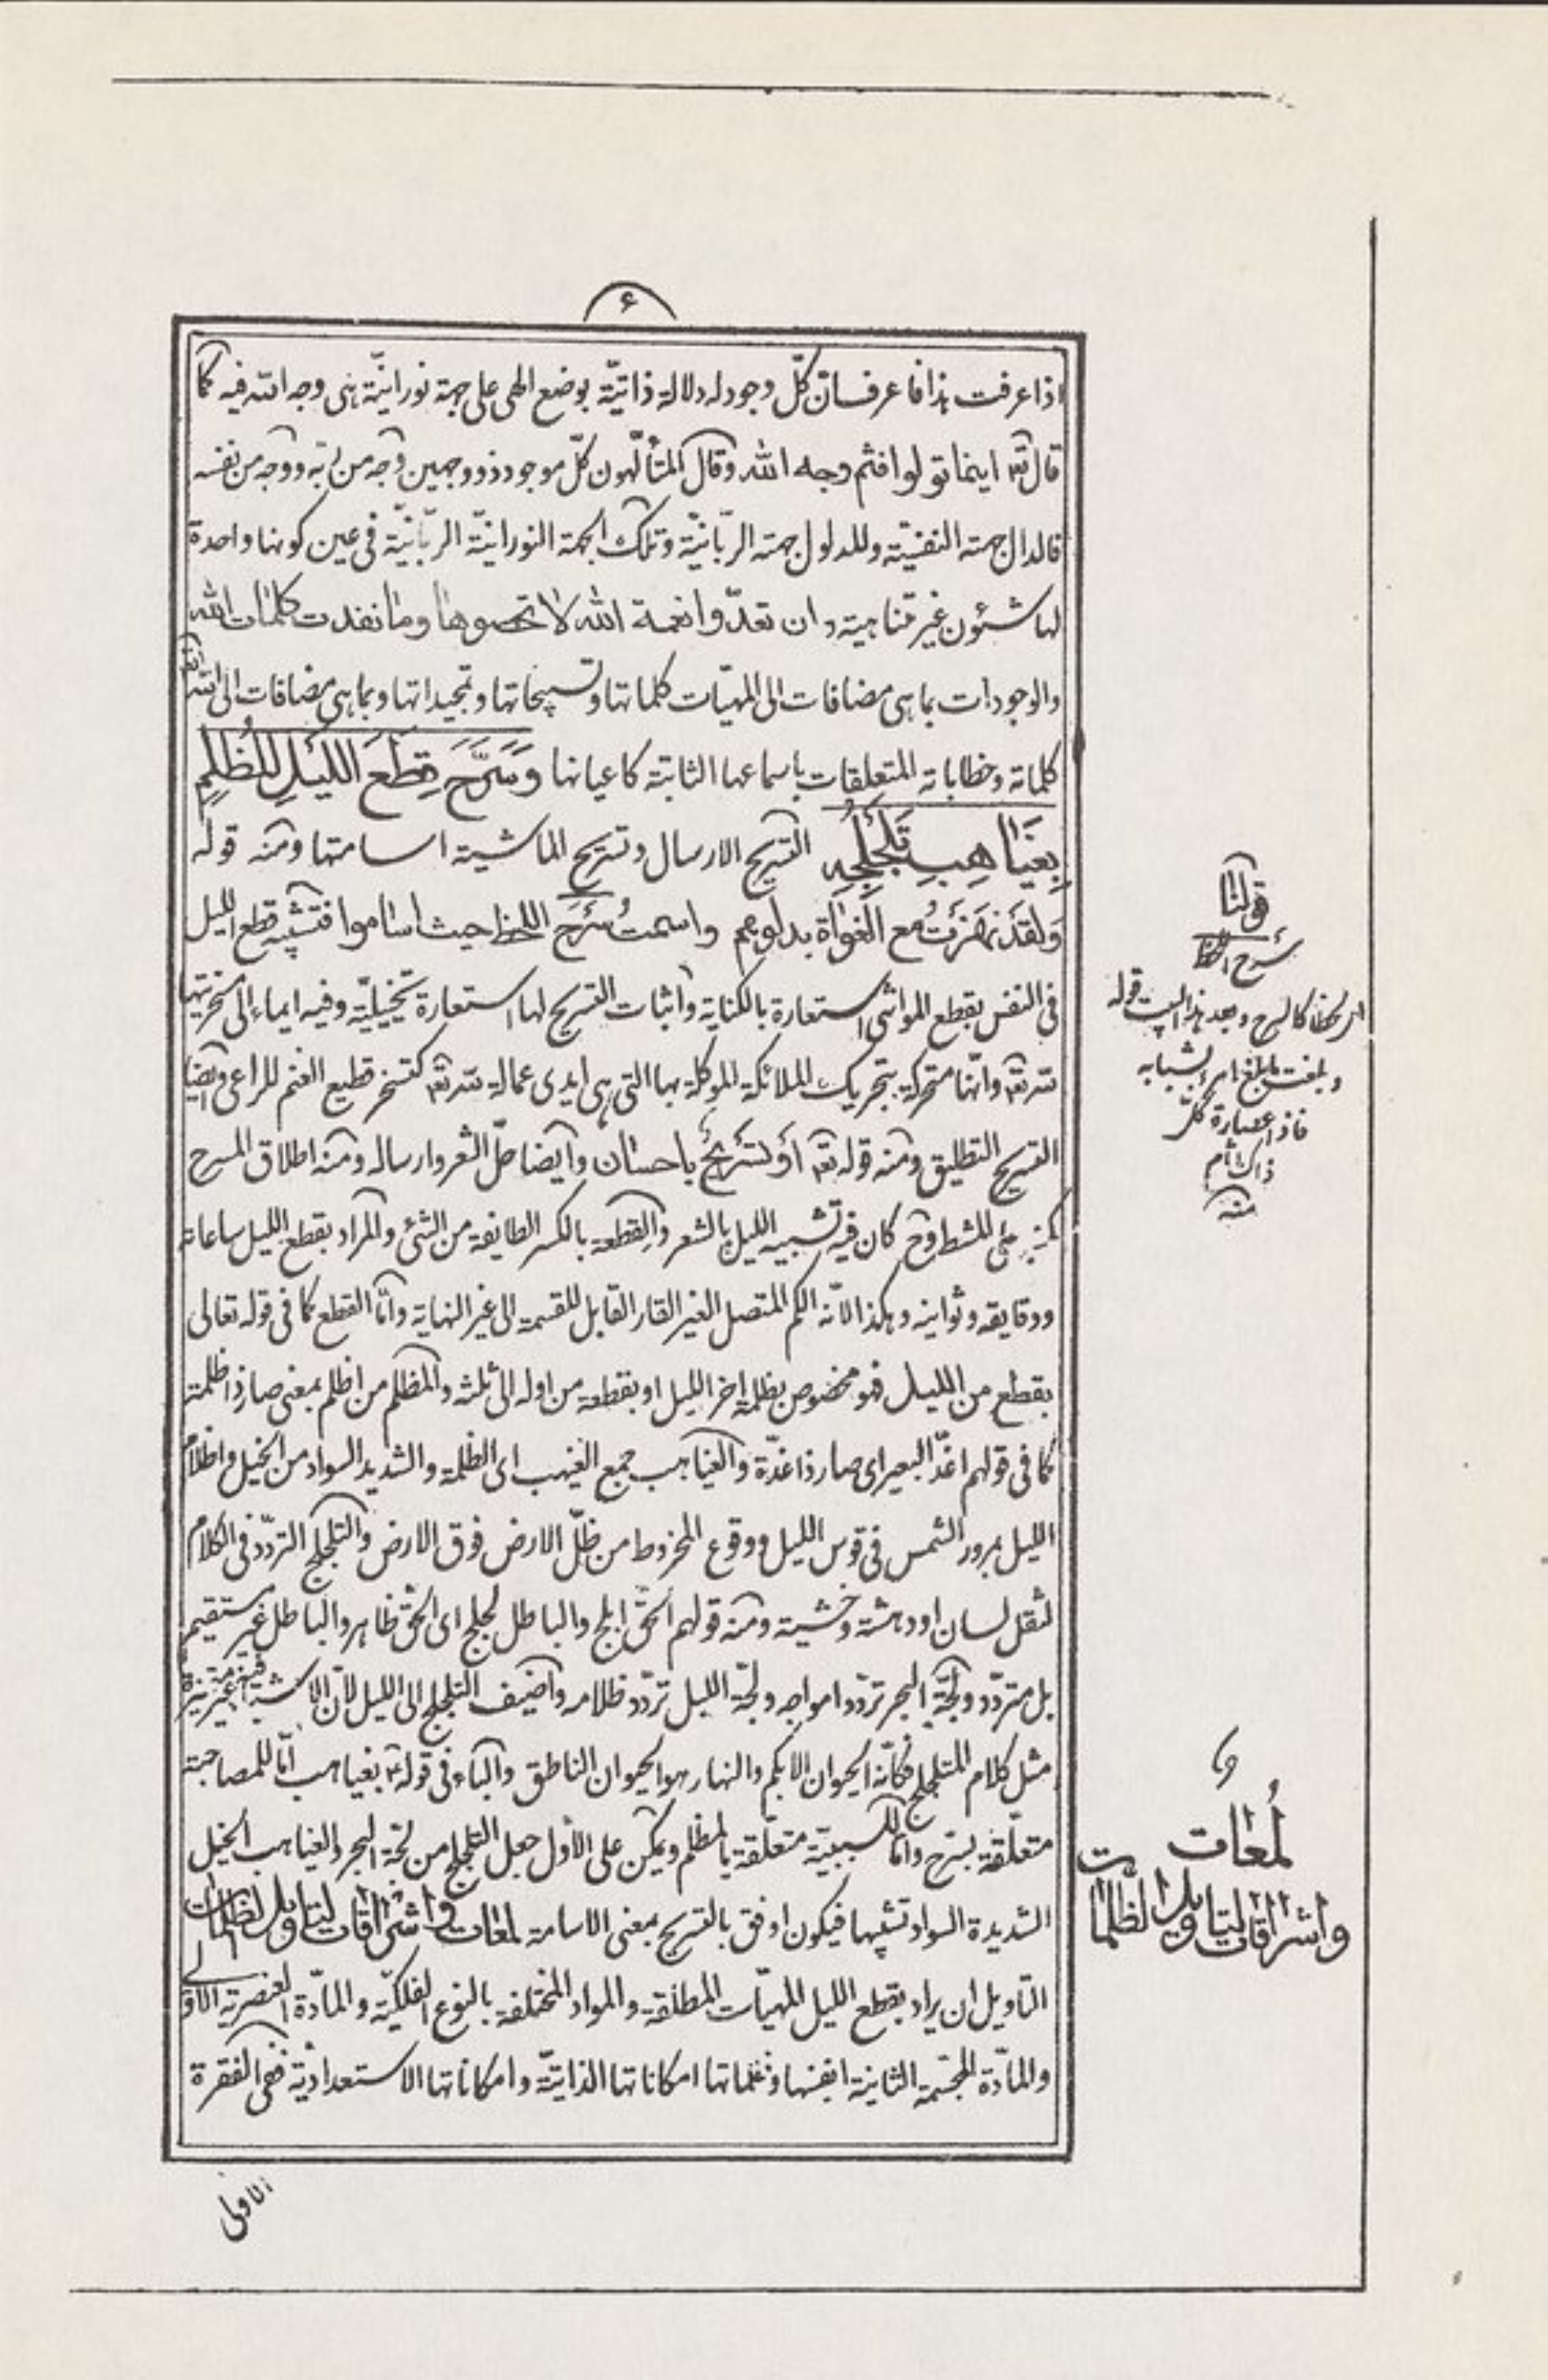 ۶
اذا عرفت هذا فاعرف ان كلّ وجود له دلالة ذاتيّة بوضع الهى على جهة نورانيّة هى وجه الله فيه كما
قال تع اينما تولوا فثم وجه الله وقال المتألّهون كلّ موجود ذو وجهين وجه من ربّه ووجه من نفسه
فالدال جهته النفسيّة وللدلول جهته الربّانيّة وتلك الجهة النورانيّة الربّانيّة فى عين كونها واحدة
لها شئون غير متناهية وان تعدّوا نعمة الله لا تحصوها وما نفدت كلمات الله
والوجودات بما هى مضافات الى المهيّات كلماتها وتسبيحاتها وتمجيداتها وبما هى مضافات الى الله تع
كلماته وخطاباته المتعلقات باسماعها الثابتة كاعيانها وَسَرَّحَ قِطَعَ اللَّيْلِ الْمُظْلِمِ
بِغَيَاهِبِ تَلَجْلُجِهِ التسريح الارسال وتسريح الماشية اسامتها ومنه قوله
وَلَقَدْ نَهَزْتُ مع الْغُوَاةِ بدلوهم واسمت سَرْحَ اللحظ حيث اساموا فتشبيه قطع الليل
فى النفس بقطع المواشى استعارة بالكناية واثبات التسريح لها استعارة تخييليّة وفيه ايماء الى مسخّريتها
لله تع وانّها متحركة بتحريك الملائكة الموكلة بها التى هى ايدى عمالة لله تع كتسخر قطيع الغنم للراعى وايضا
التسريح التطليق ومنه قوله تع اَوْ تَسْرِيحٌ باحسان وايضا حلّ الشعر وارساله ومنه اطلاق المسرح
كمنبر على المشط وح كان فيه تشبيه الليل بالشعر والقِطعة بالكسر الطايفة من الشئ والمراد بقطع الليل ساعاته
ودقايقه وثوانيه وهكذا لانّه الكم المتصل الغير القار القابل للقسمة الى غير النهاية وامّا القطع كما فى قوله تعالى
بقطع من الليل فهو مخصوص بظلمة اخر الليل او بقطعة من اوله الى ثلثه والمظلم من اظلم بمعنى صار ذا ظلمة
كما فى قولهم اغدّ البعير اى صار ذا غدّة والغياهب جمع الغيهب اى الظلمة والشديد السواد من الخيل واظلام
الليل بمرور الشمس فى قوس الليل ووقوع المخروط من ظلّ الارض فوق الارض والتلجلج التردّد فى الكلام
لثقل لسان او دهشة وخشية ومنه قولهم الحقّ ابلج والباطل لجلج اى الحقّ ظاهر والباطل غير مستقيم
بل متردّد ولجّة البحر تردّد امواجه ولجّة الليل تردّد ظلامه واضيف التلجلج الى الليل لانّ الاشيا فيه غير متميزة
مثل كلام المتلجلج فكانّه الحيوان الابكم والنهار هو الحيوان الناطق والباء فى قوله بغياهب امّا للمصاحبة
متعلّقة بسرّح وامّا للسببيّة متعلّقة بالمظلم ويمكن على الاول جعل التلجلج من لجّة البحر والغياهب الخيل
الشديدة السواد تشبيها فيكون اوفق بالتسريح بمعنى الاسامة لمعات واشراقات لتاويل الظلمات
التاويل ان يراد بقطع الليل المهيّات المطلقة والمواد المختلفة بالنوع الفلكيّة والمادّة العنصرية الاولى
والمادّة المجسّمة الثانية انفسها وظلماتها امكاناتها الذاتيّة وامكاناتها الاستعداديّة ففى الفقرة
الاولى
قولنا
سرح اللحظ
اى لحظا كالسرح وبعد هذا البيت قوله
وبلغت ما بلغ امرؤ بشبابه
فاذا عصارة كلّ
ذاك اثام
منه
لمعات
واشراقات لتاويل الظلمات